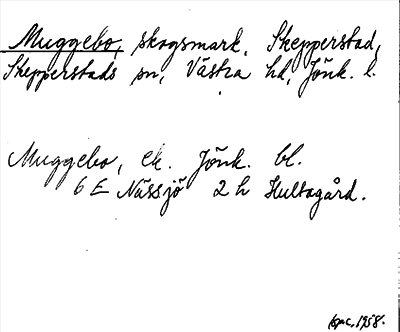 Muggebo, skogsmark, Skepperstad,
Skepperstads sn, Västra hd, Jönk. l.
Muggebo, ek. Jönk. bl.
6 E Nässjö 2 h Hultagård.
1958.